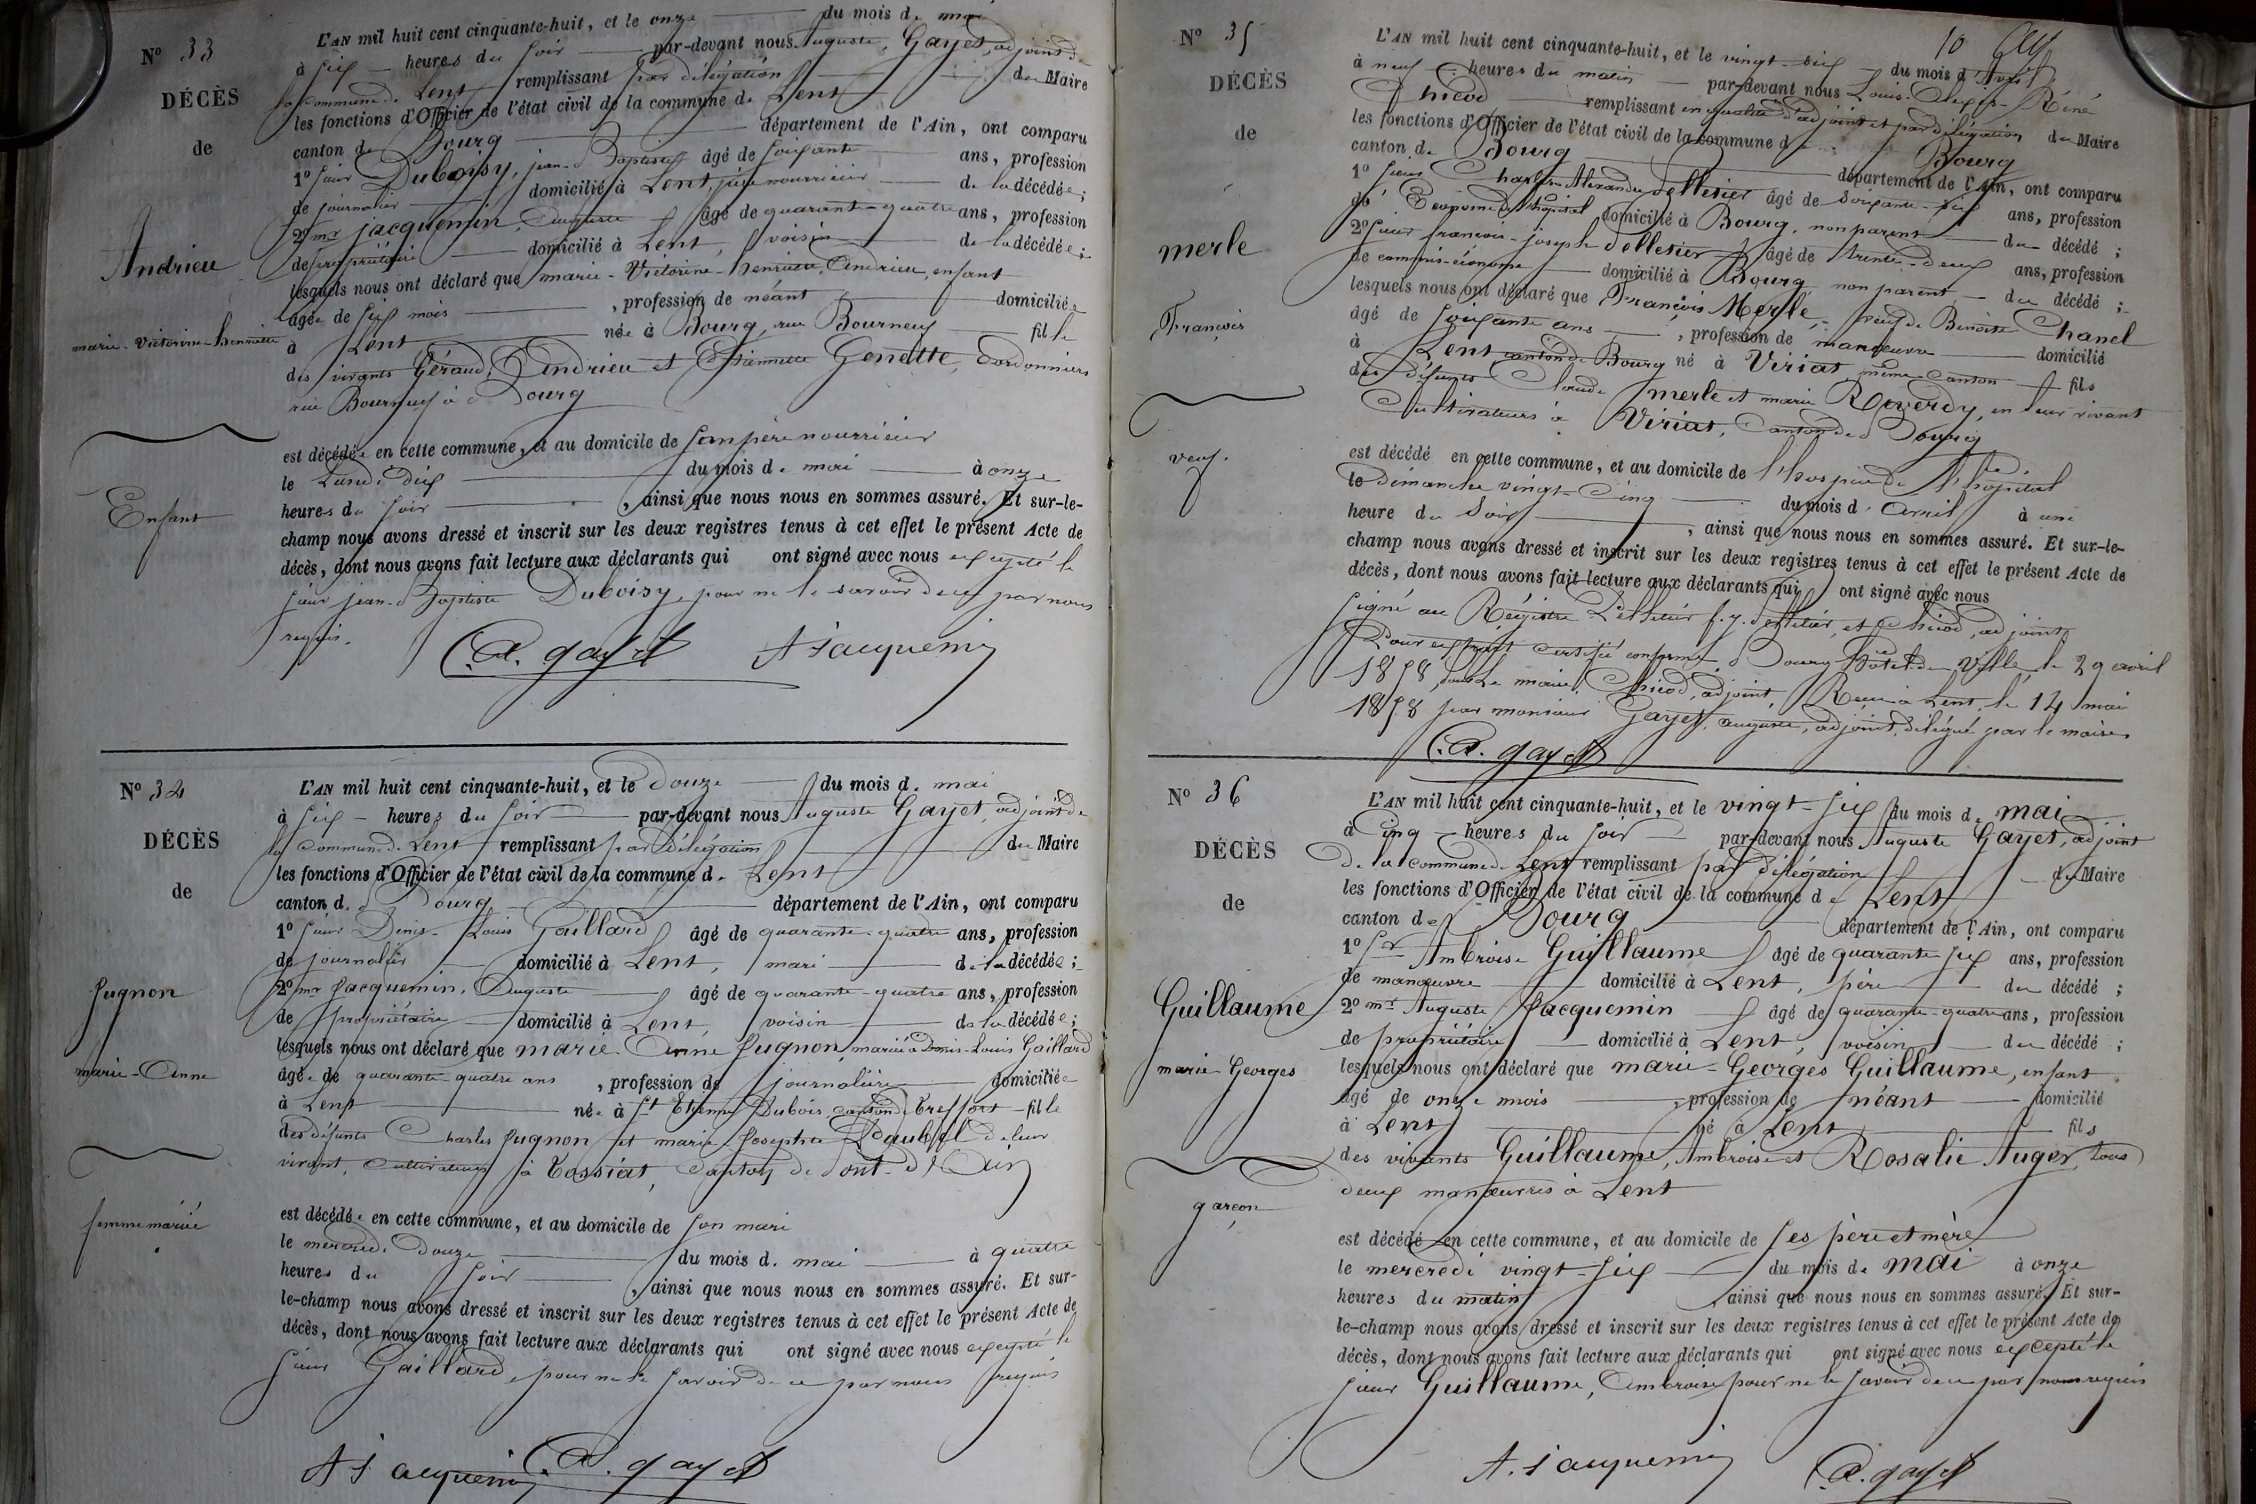 N° 33
DÉCÈS
de
Andrieu
marie-Victorine-henriette
Enfant
L'AN mil huit cent cinquante-huit, et le onze du mois de mai
à six heures du soir par-devant nous Auguste Gayet, adjoint de
la commune de Lent remplissant par délégation du Maire
les fonctions d'Officier de l'état civil de la commune de Lent
canton de Bourg département de l'Ain, ont comparu
1° sieur Duboisy, jean-Baptiste âgé de soixante ans, profession
de journalier domicilié à Lent, père nourricier de la décédée ;
2° mr jacquemin, Auguste âgé de quarante-quatre ans, profession
de propriétaire domicilié à Lent, voisin de la décédée ;
lesquels nous ont déclaré que marie-Victorine-henriette, Andrieu, enfant
âgée de six mois , profession de néant domiciliée
à Lent née à Bourg, rue Bourneuf fille
des vivants Géraud, Andrieu et Etiennette Genette, Cordonniers
rue Bourneuf à Bourg
est décédée en cette commune, et au domicile de son père nourricier
le Lundi dix du mois de mai à onze
heures du soir , ainsi que nous nous en sommes assuré. Et sur-le-
champ nous avons dressé et inscrit sur les deux registres tenus à cet effet le présent Acte de
décès, dont nous avons fait lecture aux déclarants qui ont signé avec nous excepté le
sieur jean-Baptiste Duboisy, pour ne le savoir de ce par nous
requis.
A. gayet A Jacquemin
N° 34
DÉCÈS
de
Jugnon
marie-Anne
femme mariée
L'AN mil huit cent cinquante-huit, et le Douze du mois de mai
à six heures du soir par-devant nous Auguste Gayet, adjoint de
la commune de Lent remplissant par délégation du Maire
les fonctions d'Officier de l'état civil de la commune de Lent
canton de Bourg département de l'Ain, ont comparu
1° sieur Denis-Louis Gaillard âgé de quarante-quatre ans, profession
de journalier domicilié à Lent, mari de la décédée ;
2° mr Jacquemin, Auguste âgé de quarante-quatre ans, profession
de propriétaire domicilié à Lent, voisin de la décédée ;
lesquels nous ont déclaré que marie-Anne Jugnon, mariée à Denis-Louis Gaillard
âgée de quarante-quatre ans , profession de journalière domiciliée
à Lent née à St Etienne Dubois, canton de Treffort fille
des défunts Charles Jugnon et marie-Josephte de leur
vivant, cultivateurs à Tossiat, Canton de Pont-d'Ain
est décédée en cette commune, et au domicile de son mari
le mercredi Douze du mois de mai à quatre
heures du soir , ainsi que nous nous en sommes assuré. Et sur-
le-champ nous avons dressé et inscrit sur les deux registres tenus à cet effet le présent Acte de
décès, dont nous avons fait lecture aux déclarants qui ont signé avec nous excepté le
sieur Gaillard, pour ne le savoir de ce par nous requis
A Jacquemin A. gayet
10
N° 35
DÉCÈS
de
merle
François
veuf.
L'AN mil huit cent cinquante-huit, et le vingt-six du mois d'Avril
à neuf heures du matin par-devant nous Louis-Alexis-Réné
Chicod remplissant en qualité d'adjoint et par délégation du Maire
les fonctions d'Officier de l'état civil de la commune de Bourg
canton de Bourg département de l'Ain, ont comparu
1° sieur Charles-Alexandre Pelletier âgé de soixante-six ans, profession
d'Econome de l'hôpital domicilié à Bourg, non parent du décédé ;
2° sieur françois-joseph Pelletier âgé de trente-deux ans, profession
de commis-économe domicilié à Bourg non parent du décédé ;
lesquels nous ont déclaré que François Merle, veuf de Benoite Chanel
âgé de soixante ans , profession de manœuvre domicilié
à Lent canton de Bourg né à Viriat même canton fils
des défunts Claude merle et marie Reverdy, en leur vivant
Cultivateurs à Viriat, Canton de Bourg
est décédé en cette commune, et au domicile de l'hospice de l'hôpital
le Dimanche vingt-cinq du mois d'Avril à une
heure du soir , ainsi que nous nous en sommes assuré. Et sur-le-
champ nous avons dressé et inscrit sur les deux registres tenus à cet effet le présent Acte de
décès, dont nous avons fait lecture aux déclarants qui ont signé avec nous
signé au Régistre Pelletier f. j. Pelletier, et Chicod, adjoint.
Pour extrait certifié conforme à Bourg Hôtel de Ville, le 29 avril
1858, Pour le maire, Chicod, adjoint, Reçu à Lent, le 14 mai
1858 par monsieur Gayet, auguste, adjoint, délégué par le maire.
A. gayet
N° 36
DÉCÈS
de
Guillaume
marie-Georges
garçon
L'AN mil huit cent cinquante-huit, et le vingt-six du mois de mai
à Cinq heures du soir par-devant nous Auguste Gayet, adjoint
de la commune de Lent remplissant par délégation du Maire
les fonctions d'Officier de l'état civil de la commune de Lent
canton de Bourg département de l'Ain, ont comparu
1° sr Ambroise Guillaume âgé de quarante six ans, profession
de manœuvre domicilié à Lent, père du décédé ;
2° mr Auguste Jacquemin âgé de quarante-quatre ans, profession
de propriétaire domicilié à Lent, voisin du décédé ;
lesquels nous ont déclaré que marie-Georges Guillaume, enfant
âgé de onze mois , profession de néant domicilié
à Lent né à Lent fils
des vivants Guillaume, Ambroise et Rosalie Auger, tous
deux manœuvres à Lent
est décédé en cette commune, et au domicile de ses père et mère
le mercredi vingt-six du mois de mai à onze
heures du matin , ainsi que nous nous en sommes assuré. Et sur-
le-champ nous avons dressé et inscrit sur les deux registres tenus à cet effet le présent Acte de
décès, dont nous avons fait lecture aux déclarants qui ont signé avec nous excepté le
sieur Guillaume, Ambroise pour ne le savoir de ce par nous requis
A. Jacquemin A. gayet